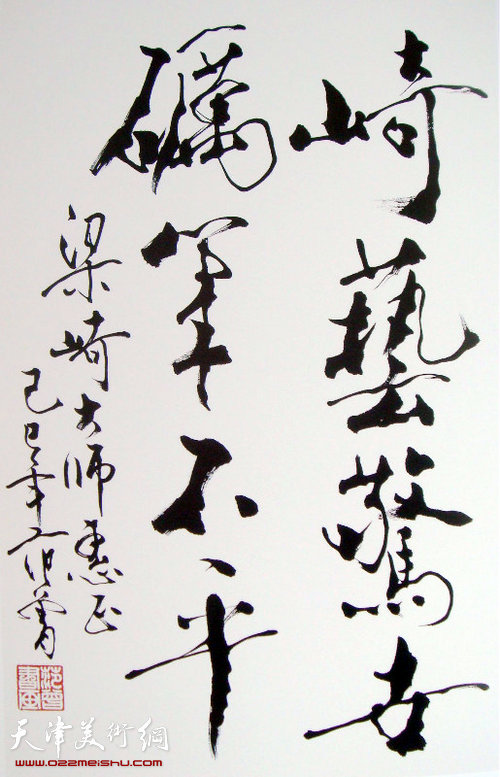 崎藝驚世
礪筆不平
梁崎大師惠正
己巳年范曾
天津美術網
www.022meishu.com